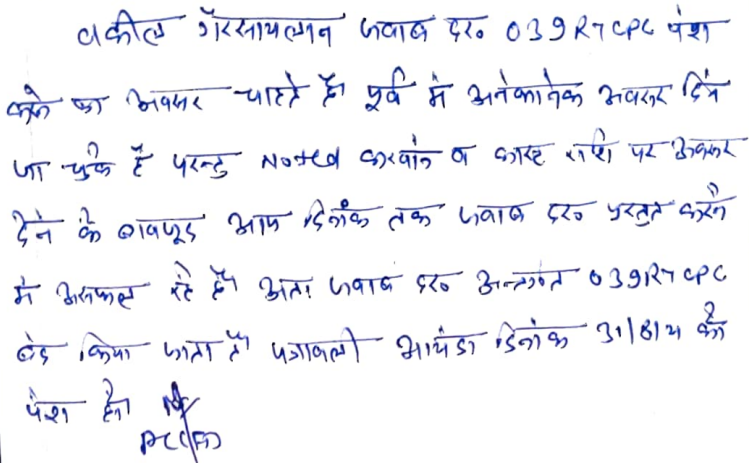 वकील गैरसायलान जवाब दर० O39 R7 CPC पेश
करने का अवसर चाहते है। पूर्व में अनेकानेक अवसर दिये
जा चुके है परन्तु Noted करवाने व कास्ट राशि पर अवसर
देने के बावजूद आज दिनांक तक जवाब दर० प्रस्तुत करने
में असफल रहे है। अतः जवाब दर० अन्तर्गत O39 R7 CPC
बंद किया जाता है। पत्रावली आयंदा दिनांक को
पेश हो।